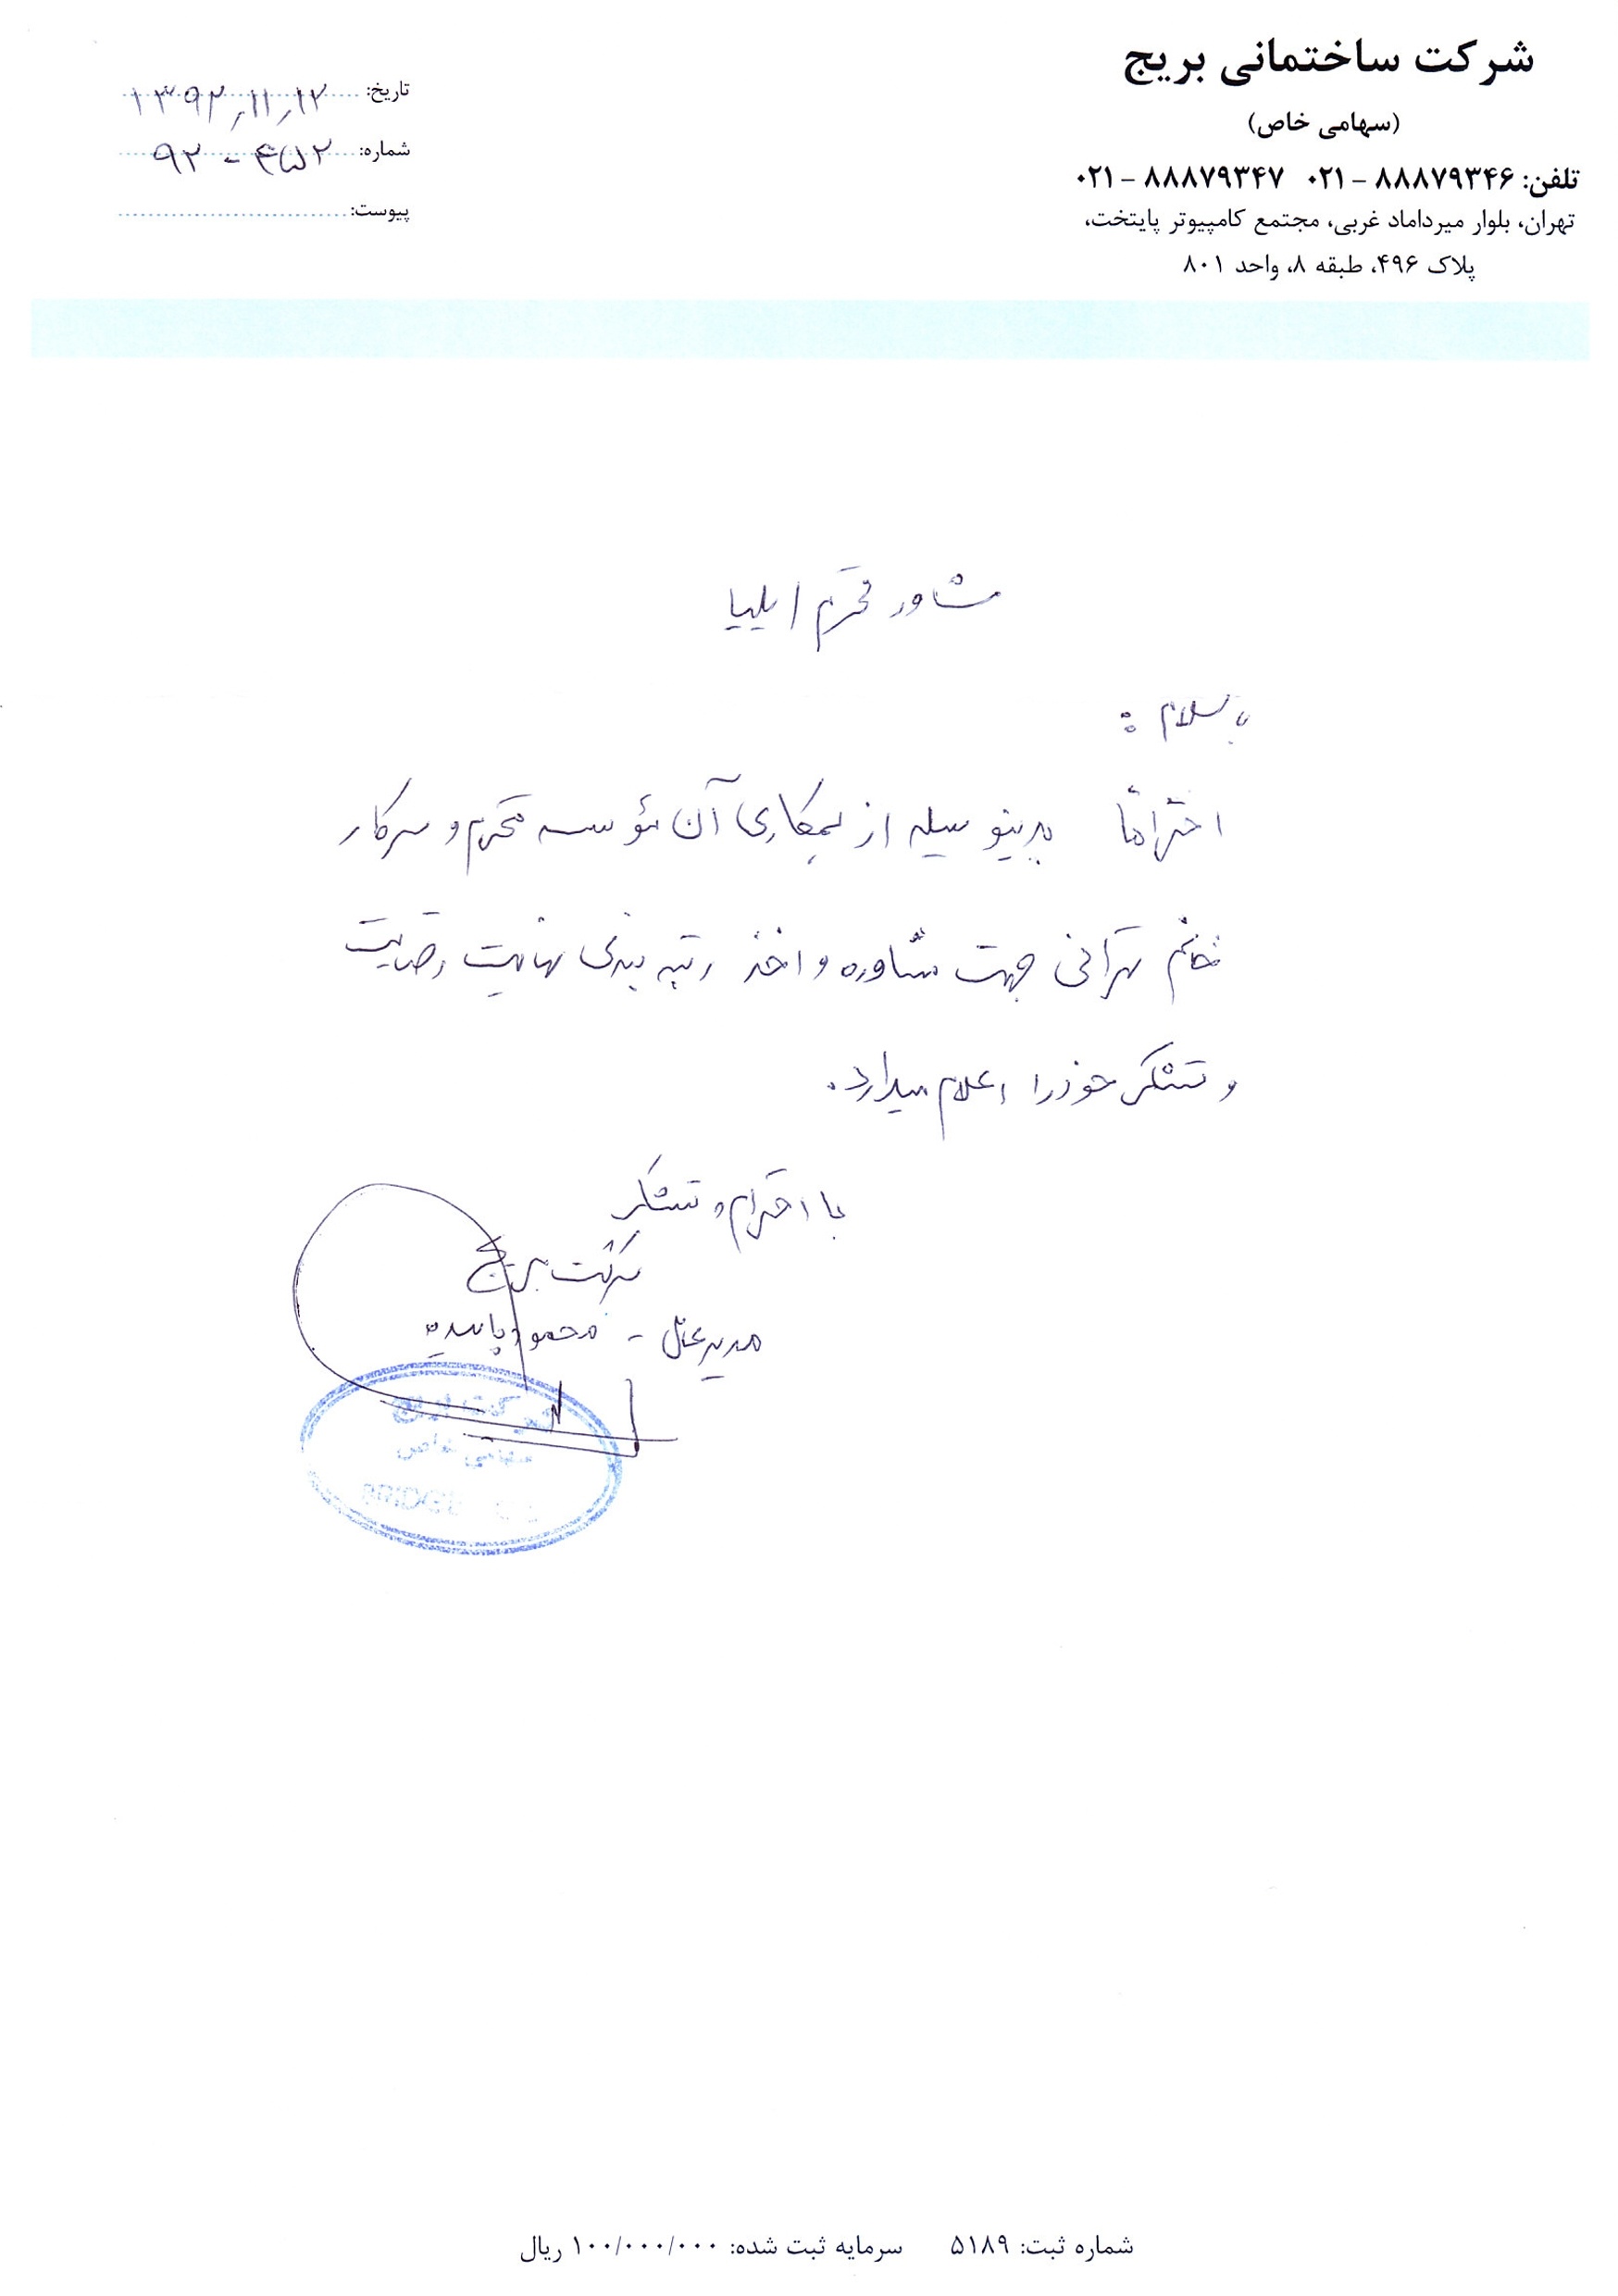 شرکت ساختمانی بریج
(سهامی خاص)
تلفن: ۸۸۸۷۹۳۴۶ – ۰۲۱ ۸۸۸۷۹۳۴۷ – ۰۲۱
تهران، بلوار میرداماد غربی، مجتمع کامپیوتر پایتخت،
پلاک ۴۹۶، طبقه ۸، واحد ۸۰۱
تاریخ: ۱۳۹۲,۱۱,۱۲
شماره: ۹۲ - ۴۵۲
پیوست:
مشاور محترم ایلیا
با سلام :
احتراماً بدینوسیله از همکاری آن مؤسسه محترم و سرکار
خانم تهرانی جهت مشاوره و اخذ رتبه بندی نهایت رضایت
و تشکر خود را اعلام میدارد.
با احترام و تشکر
شرکت بریج
مدیر عامل - محمود پاینده
شرکت بریج
سهامی خاص
شماره ثبت: ۵۱۸۹ سرمایه ثبت شده: ۱۰۰/۰۰۰/۰۰۰ ریال